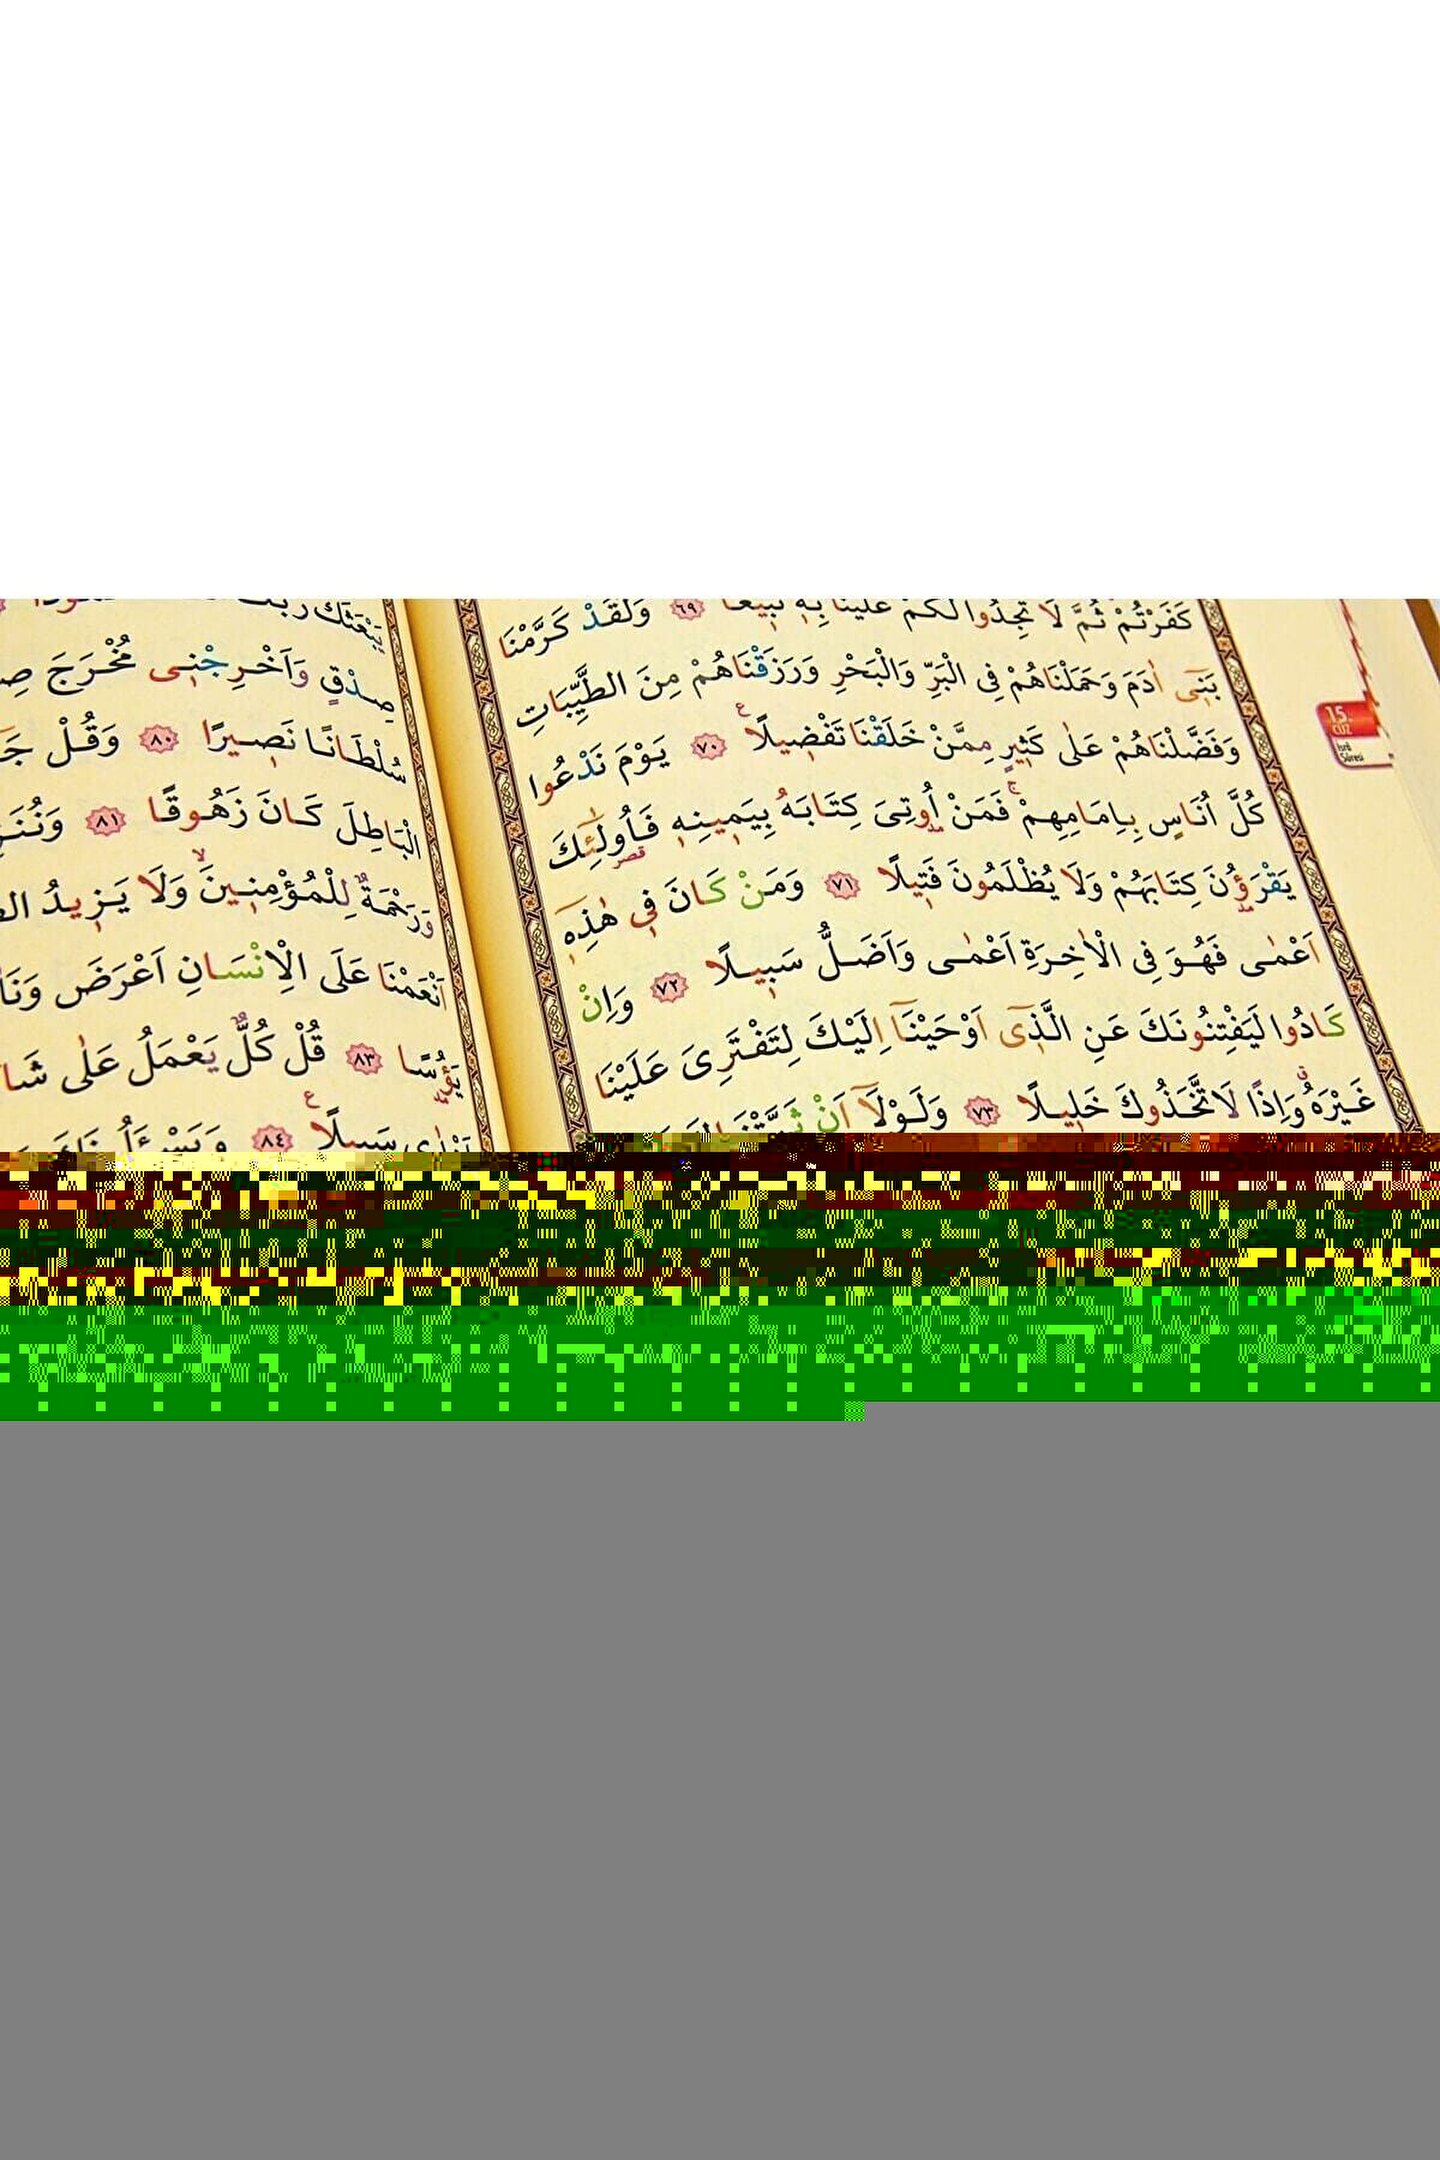 كَفَرْتُمْ ثُمَّ لَا تَجِدُوا لَكُمْ عَلَيْنَا بِهِ تَبِيعًا ٦٩ وَلَقَدْ كَرَّمْنَا
بَنِٓى اٰدَمَ وَحَمَلْنَاهُمْ فِى الْبَرِّ وَالْبَحْرِ وَرَزَقْنَاهُمْ مِنَ الطَّيِّبَاتِ
وَفَضَّلْنَاهُمْ عَلٰى كَثِيرٍ مِمَّنْ خَلَقْنَا تَفْضِيلًا ع ٧٠ يَوْمَ نَدْعُوا
كُلَّ اُنَاسٍ بِاِمَامِهِمْ ج فَمَنْ اُو۫تِىَ كِتَابَهُ بِيَمِينِهِ فَاُولٰٓئِكَ
يَقْرَؤُ۫نَ كِتَابَهُمْ وَلَا يُظْلَمُونَ فَتِيلًا ٧١ وَمَنْ كَانَ فِى هٰذِهِٓ
اَعْمٰى فَهُوَ فِى الْاٰخِرَةِ اَعْمٰى وَاَضَلُّ سَبِيلًا ٧٢ وَاِنْ
كَادُوا لَيَفْتِنُونَكَ عَنِ الَّذِٓى اَوْحَيْنَٓا اِلَيْكَ لِتَفْتَرِىَ عَلَيْنَا
غَيْرَهُ ق وَاِذًا لَاتَّخَذُوكَ خَلِيلًا ٧٣ وَلَوْلَٓا اَنْ
15.
CÜZ
İsrâ
Sûresi
يَبْعَثَكَ رَبُّكَ
صِدْقٍ وَاَخْرِجْنِى مُخْرَجَ
سُلْطَانًا نَصِيرًا ٨٠ وَقُلْ
الْبَاطِلَ كَانَ زَهُوقًا ٨١
وَرَحْمَةٌ لِلْمُؤْمِنِينَ لا وَلَا يَزِيدُ
اَنْعَمْنَا عَلَى الْاِنْسَانِ اَعْرَضَ
يَؤُ۫سًا ٨٣ قُلْ كُلٌّ يَعْمَلُ عَلٰى
سَبِيلًا ع ٨٤